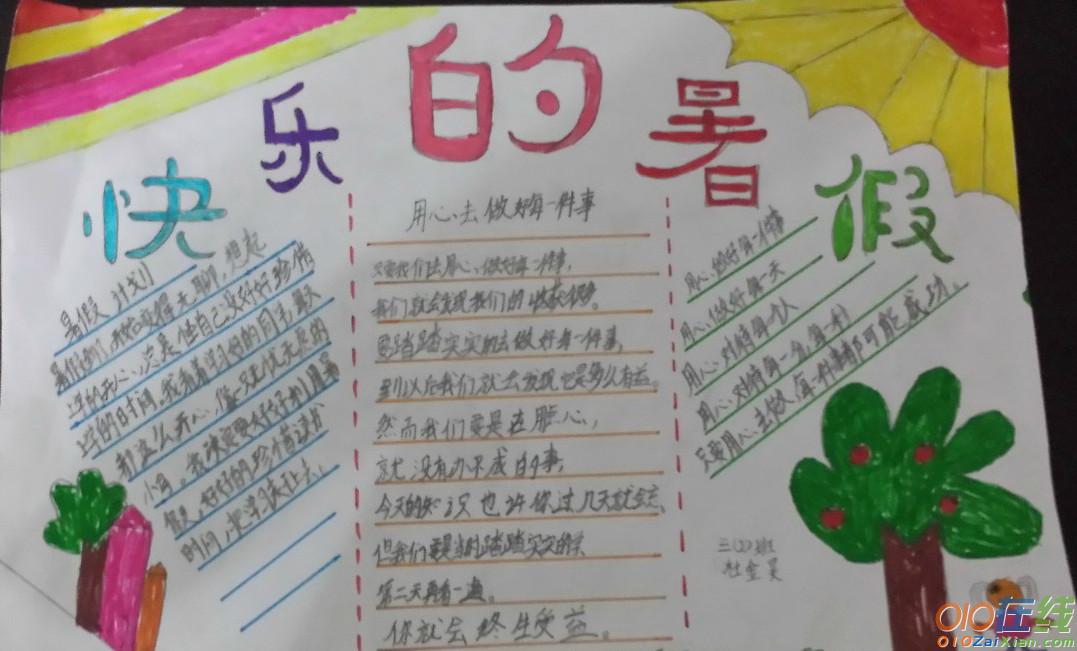 快乐的暑假
暑假计划
暑假到了,我始变得无聊,想起
上学的开心,总是使自己没好好珍惜
上学的时间,我有着说不好的同志,最
到这么开心,像一只无忧无虑的
小鸟。我决定要好好利用暑
假,好好的珍惜读书
时间,把学习搞上去。
用心去做好每一件事
只要我们去用心,做好每一件事,
我们就会发现我们的收获很多。
要踏踏实实的去做好每一件事,
到以后我们就会发现它是多么有益。
然而我们要是在脏心,
就没有办不成的事,
今天的知识也许你过几天就会忘,
但我们要是当时踏踏实实的学
第二天再看一遍。
你就会终生受益。
用心做好每一件事
用心做好每一天
用心对待每一个人
用心对待每一分,每一秒
只要用心去做,每一件事都可能成功。
三(2)班
杜金昊
010在线
010ZaiXian.com